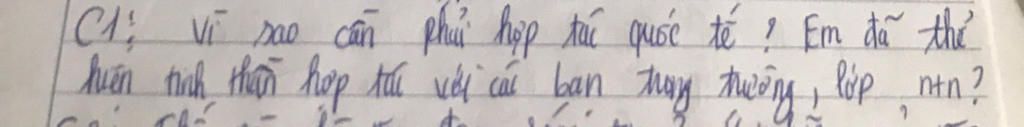 C1: Vì sao cần phải hợp tác quốc tế? Em đã thể
hiện tinh thần hợp tác với các bạn trong trường, lớp, ntn?